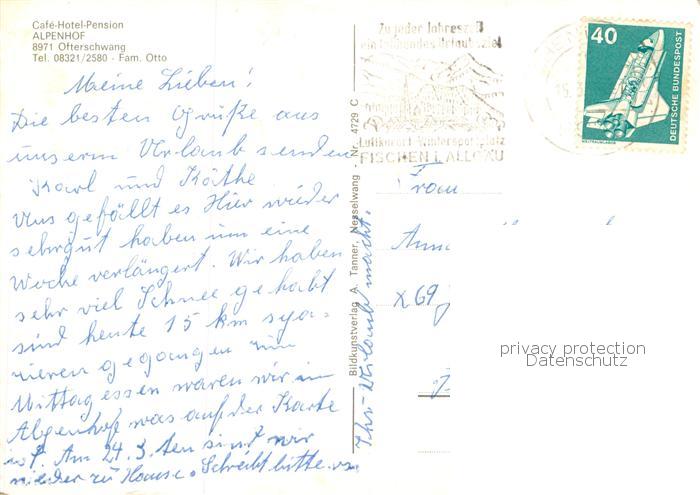 Café-Hotel-Pension
ALPENHOF
8971 Ofterschwang
Tel. 08321/2580 - Fam. Otto
Meine Lieben!
Die besten Grüße aus
unserm Urlaub senden
Karl und Käthe
Uns gefällt es Hier wieder
sehrgut haben um eine
Woche verlängert. Wir haben
sehr viel Schnee gehabt
sind heute 15 km spa=
zieren gegangen zum
Mittagessen waren wir im
Alpenhof was auf der Karte
ist. Am 24.3. ten sind wir
wieder zu Hause. Schreibt bitte
Ihr Urlaub macht.
Bildkunstverlag A. Tanner, Nesselwang - Nr. 4729 C
Zu jeder Jahreszeit
ein lohnendes Urlaubsziel
Luftkurort Wintersportplatz
FISCHEN I. ALLGÄU
40
DEUTSCHE BUNDESPOST
WELTRAUMLABOR
Frau
X 69
privacy protection
Datenschutz